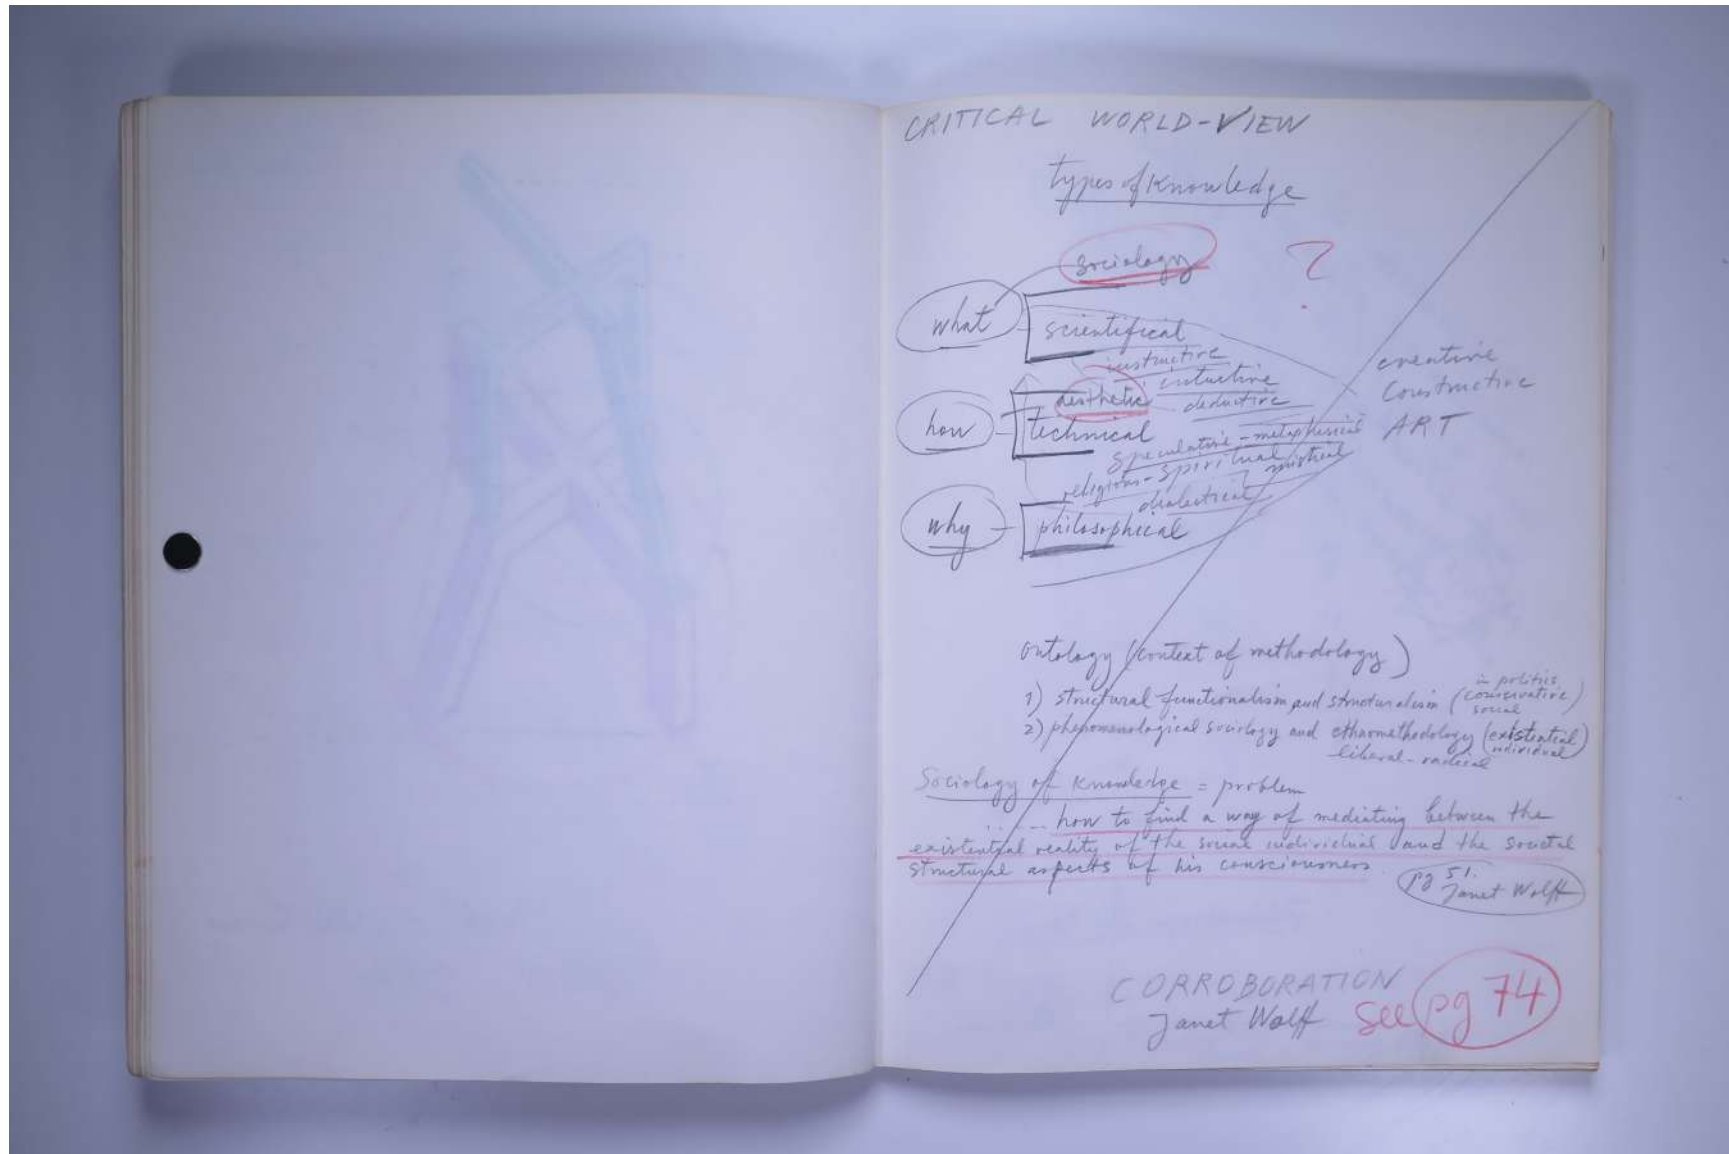 CRITICAL WORLD-VIEW
types of Knowledge
sociology ?
what
scientifical
instructive
intuitive
creative
aesthetic deductive
Constructive
how technical ART
speculative - metaphisical
religious - spiritual mistical
dialectical
why philosophical
ontology (context of methodology)
in politics
1) structural functionalism and structuralism (conservative)
social
2) phenomenological sociology and ethnomethodology (existential)
liberal-radical individual
Sociology of Knowledge = problem
..... how to find a way of mediating between the
existential reality of the social individual and the societal
structural aspects of his consciousness.
pg 51.
Janet Wolff
CORROBORATION
Janet Wolff see pg 74